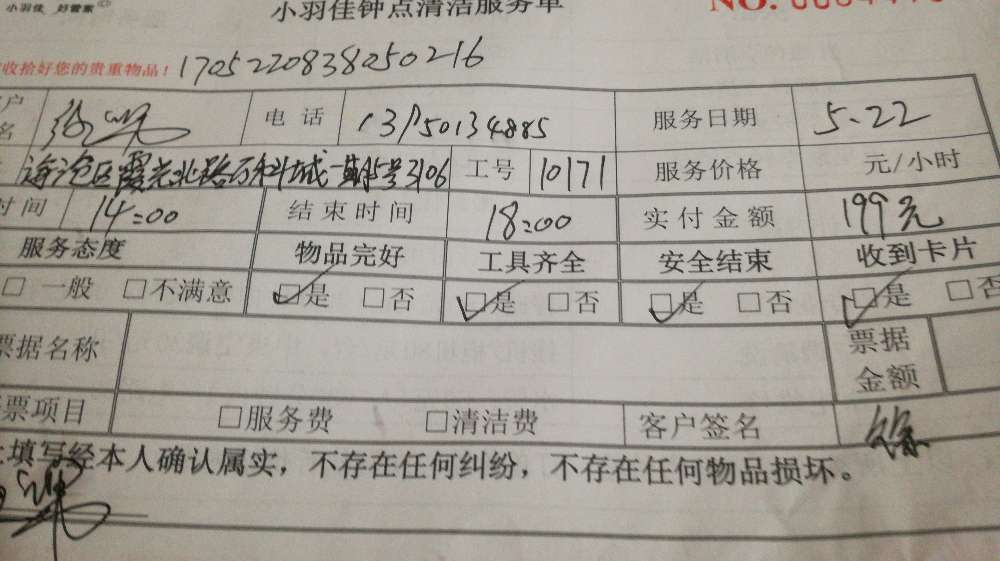 小羽佳 好管家 小羽佳钟点清洁服务单 NO.
收拾好您的贵重物品！ 1705220838050216
户名 电话 13750134885 服务日期 5.22
海沧区霞光北路万科城一期5号3106 工号 10171 服务价格 元/小时
时间 14:00 结束时间 18:00 实付金额 199元
服务态度 物品完好 工具齐全 安全结束 收到卡片
□一般 □不满意 □是 □否 □是 □否 □是 □否 □是 □否
票据名称 票据金额
票项目 □服务费 □清洁费 客户签名 徐
填写经本人确认属实，不存在任何纠纷，不存在任何物品损坏。